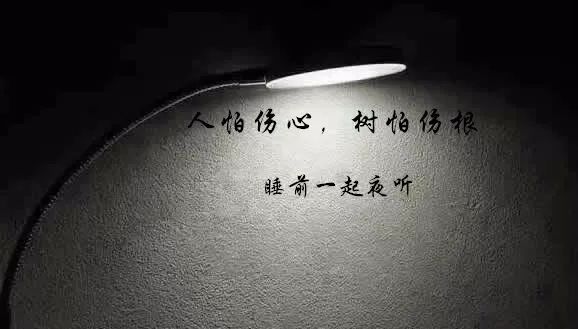 人怕伤心，树怕伤根
睡前一起夜听